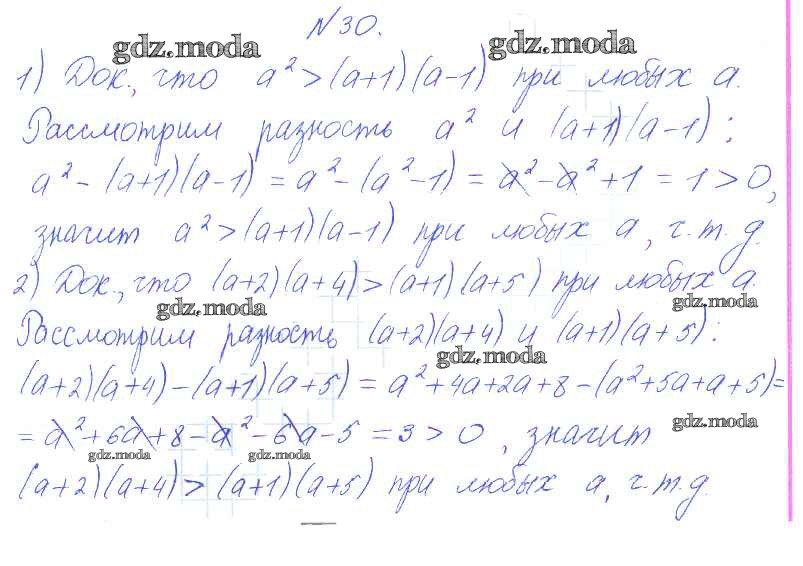 N30.
gdz.moda
gdz.moda
1) Док., что a² > (a+1)(a-1) при любых a.
Рассмотрим разность a² и (a+1)(a-1):
a² - (a+1)(a-1) = a² - (a² - 1) = a² - a² + 1 = 1 > 0,
значит a² > (a+1)(a-1) при любых a, ч.т.д.
2) Док., что (a+2)(a+4) > (a+1)(a+5) при любых a.
gdz.moda
gdz.moda
Рассмотрим разность (a+2)(a+4) и (a+1)(a+5):
gdz.moda
(a+2)(a+4) - (a+1)(a+5) = a² + 4a + 2a + 8 - (a² + 5a + a + 5) =
= a² + 6a + 8 - a² - 6a - 5 = 3 > 0, значит
gdz.moda
gdz.moda
gdz.moda
(a+2)(a+4) > (a+1)(a+5) при любых a, ч.т.д.